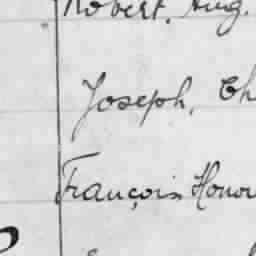 Robert, Aug.
Joseph, Ch
François Honor